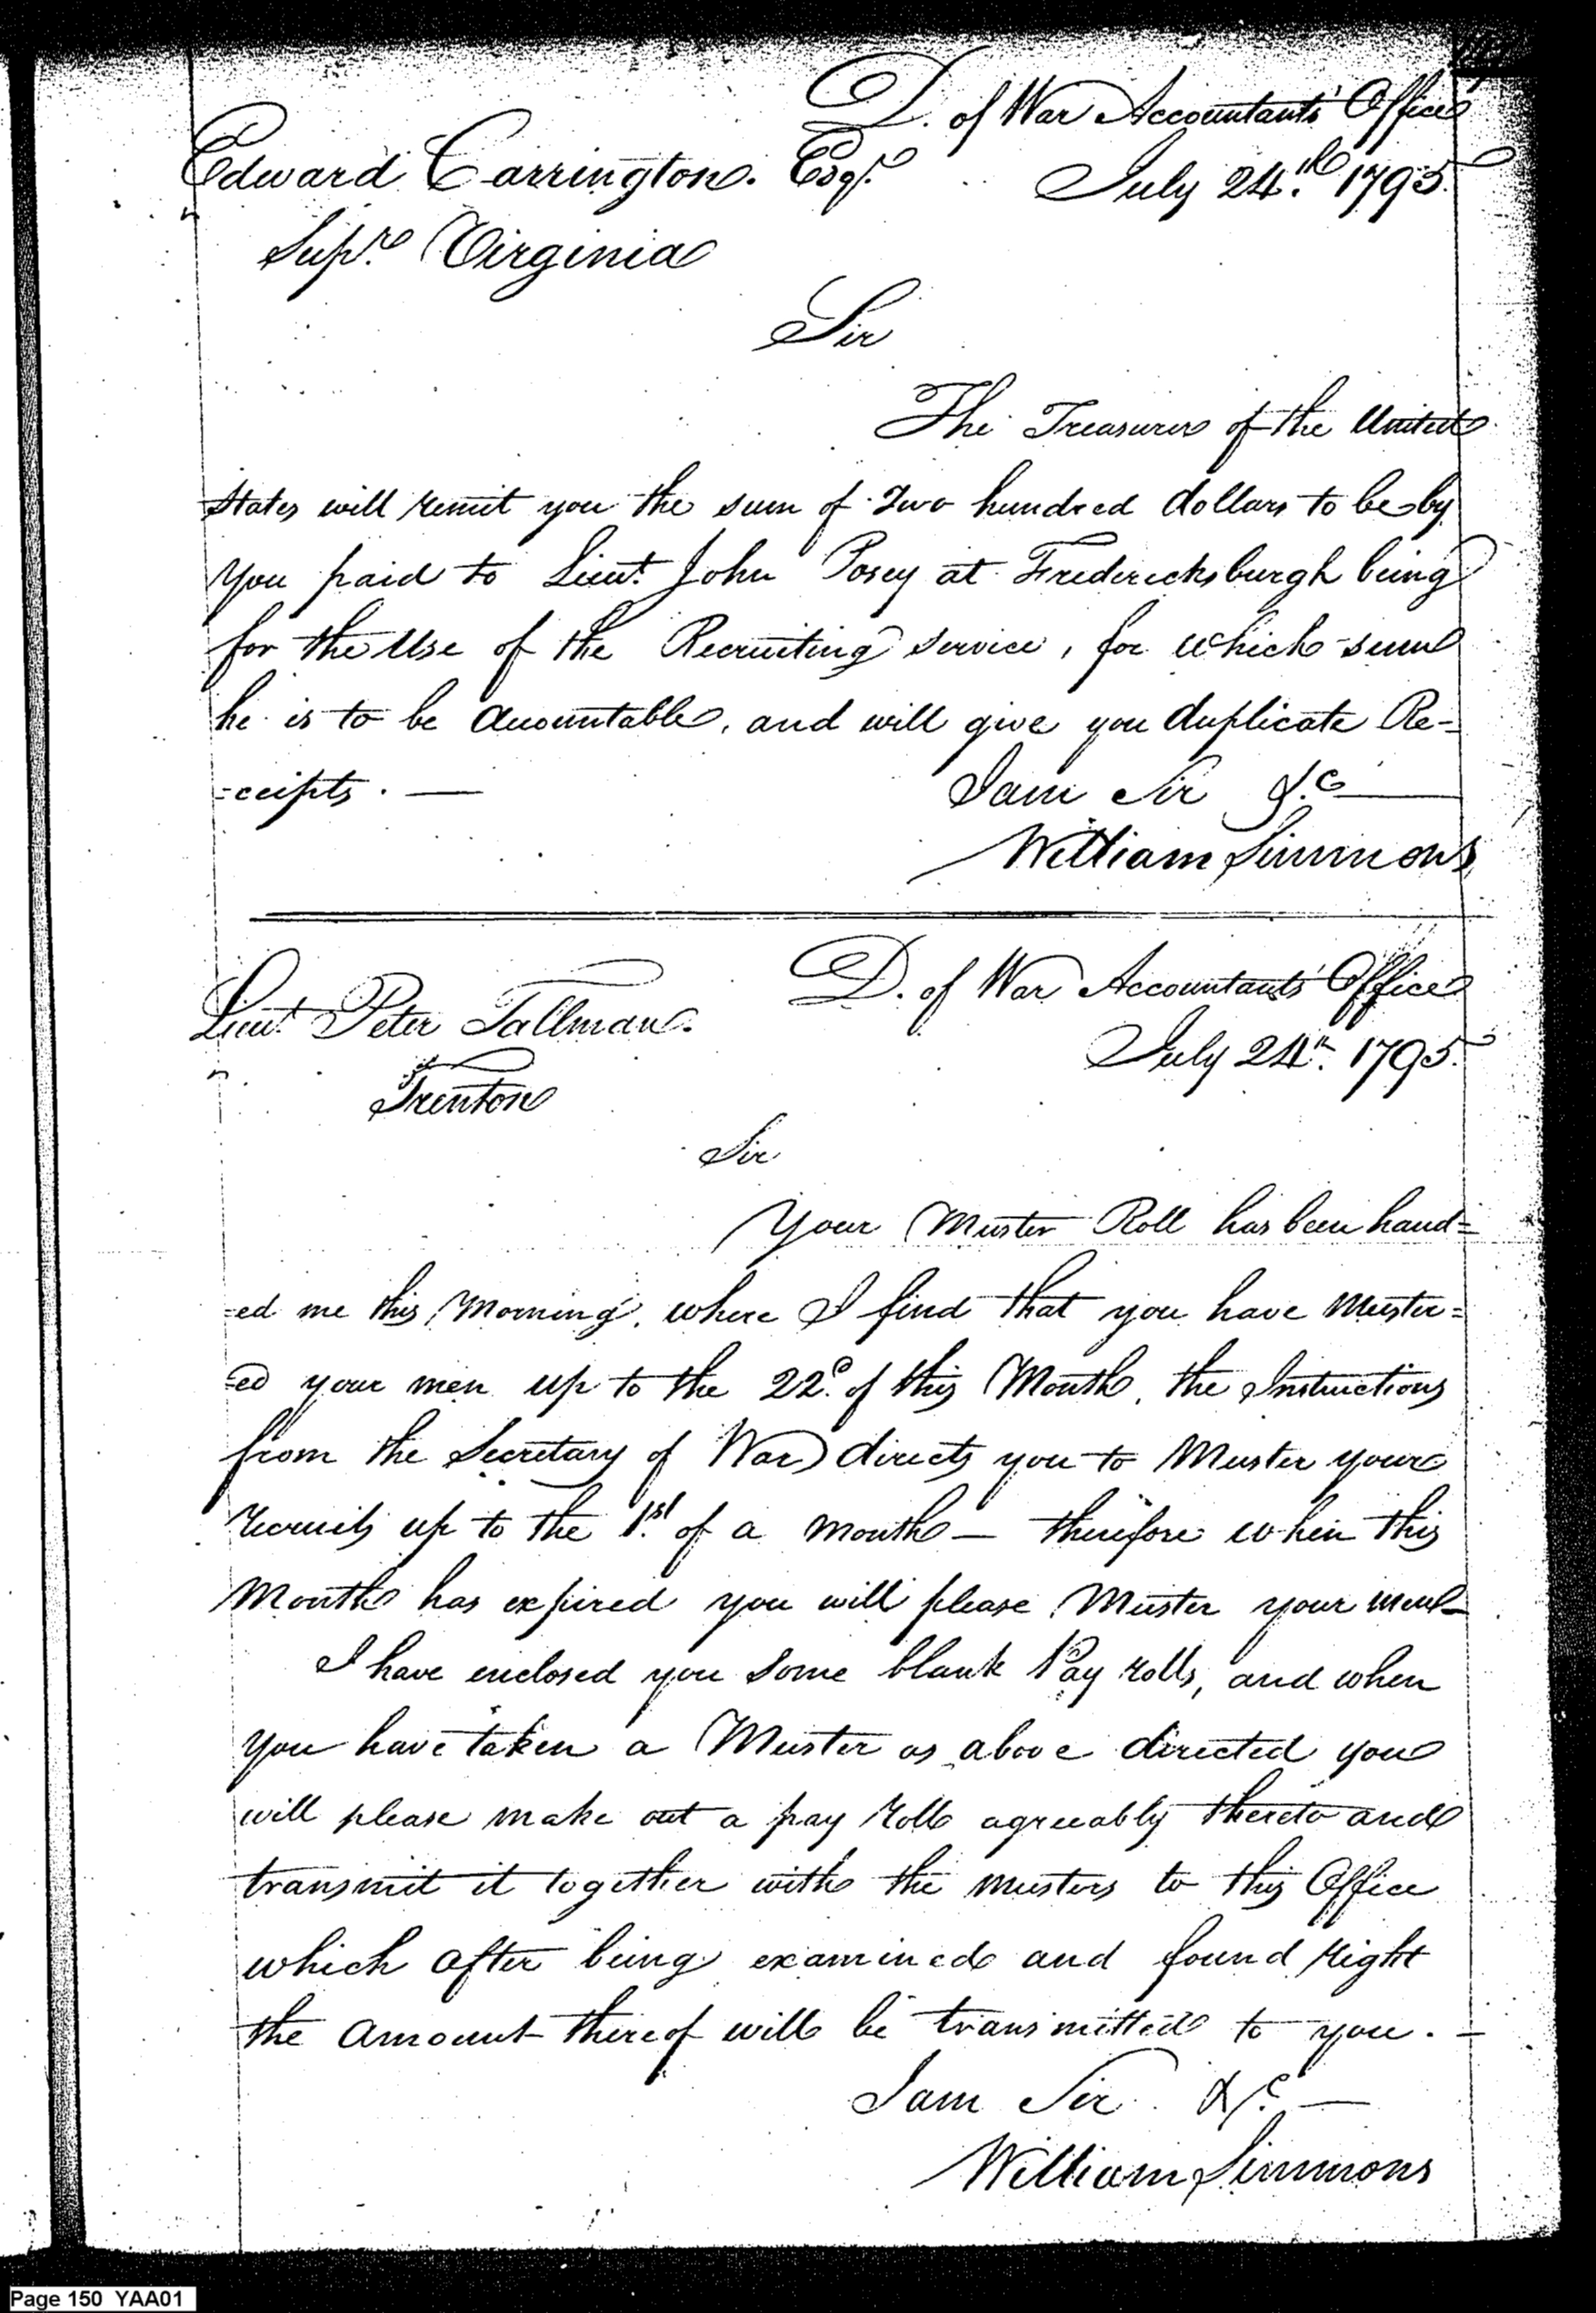 D. of War Accountants' Office
Edward Carrington. Esqr. July 24th. 1795.
Supr. Virginia
Sir
The Treasurer of the United
States will remit you the sum of Two hundred dollars to be by
you paid to Lieut. John Posey at Fredericksburgh being
for the Use of the Recruiting service, for which sum
he is to be accountable, and will give you duplicate Re-
-ceipts. —
I am Sir &c
William Simmons
D. of War Accountants' Office
Lieut. Peter Tallman.
July 24th. 1795.
Trenton
Sir
Your Muster Roll has been hand=
=ed me this Morning, where I find that you have Muster=
=ed your men up to the 22d. of this Month, the Instructions
from the Secretary of War directs you to Muster your
recruits up to the 1st. of a month — therefore when this
Month has expired you will please Muster your men—
I have enclosed you some blank Pay rolls, and when
you have taken a Muster as above directed you
will please make out a pay roll agreeably thereto and
transmit it together with the musters to this Office
which after being examined and found right
the amount thereof will be transmitted to you. —
I am Sir. &c. —
William Simmons
Page 150 YAA01